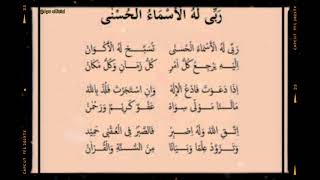 رَبِّى لَهُ الْأَسْمَاءُ الْحُسْنَى
رَبِّى لَهُ الْأَسْمَاءُ الْحُسْنَى تُسَبِّحُ لَهُ الْأَكْوَانُ
إِلَيْهِ يَرْجِعُ كُلُّ أَمْرٍ كُلُّ زَمَانٍ وَكُلُّ مَكَانٍ
إِذَا دَعَوْتَ فَادْعُ الْإِلٰهَ وَإِنِ اسْتَجَرْتَ فَلُذْ بِاللّٰهِ
مَالَنَا مَوْلًى سِوَاهُ عَفُوٌّ كَرِيْمٌ وَرَحْمٰنٌ
اِتَّقِ اللّٰهَ وَلَهُ اِصْبِرْ فَالصَّبْرُ فِى الْعُقْبَى حَمِيْد
وَتَزَوَّدْ عِلْمًا وَبَيَانًا مِنَ السُّنَّةِ وَالْقُرْآنِ